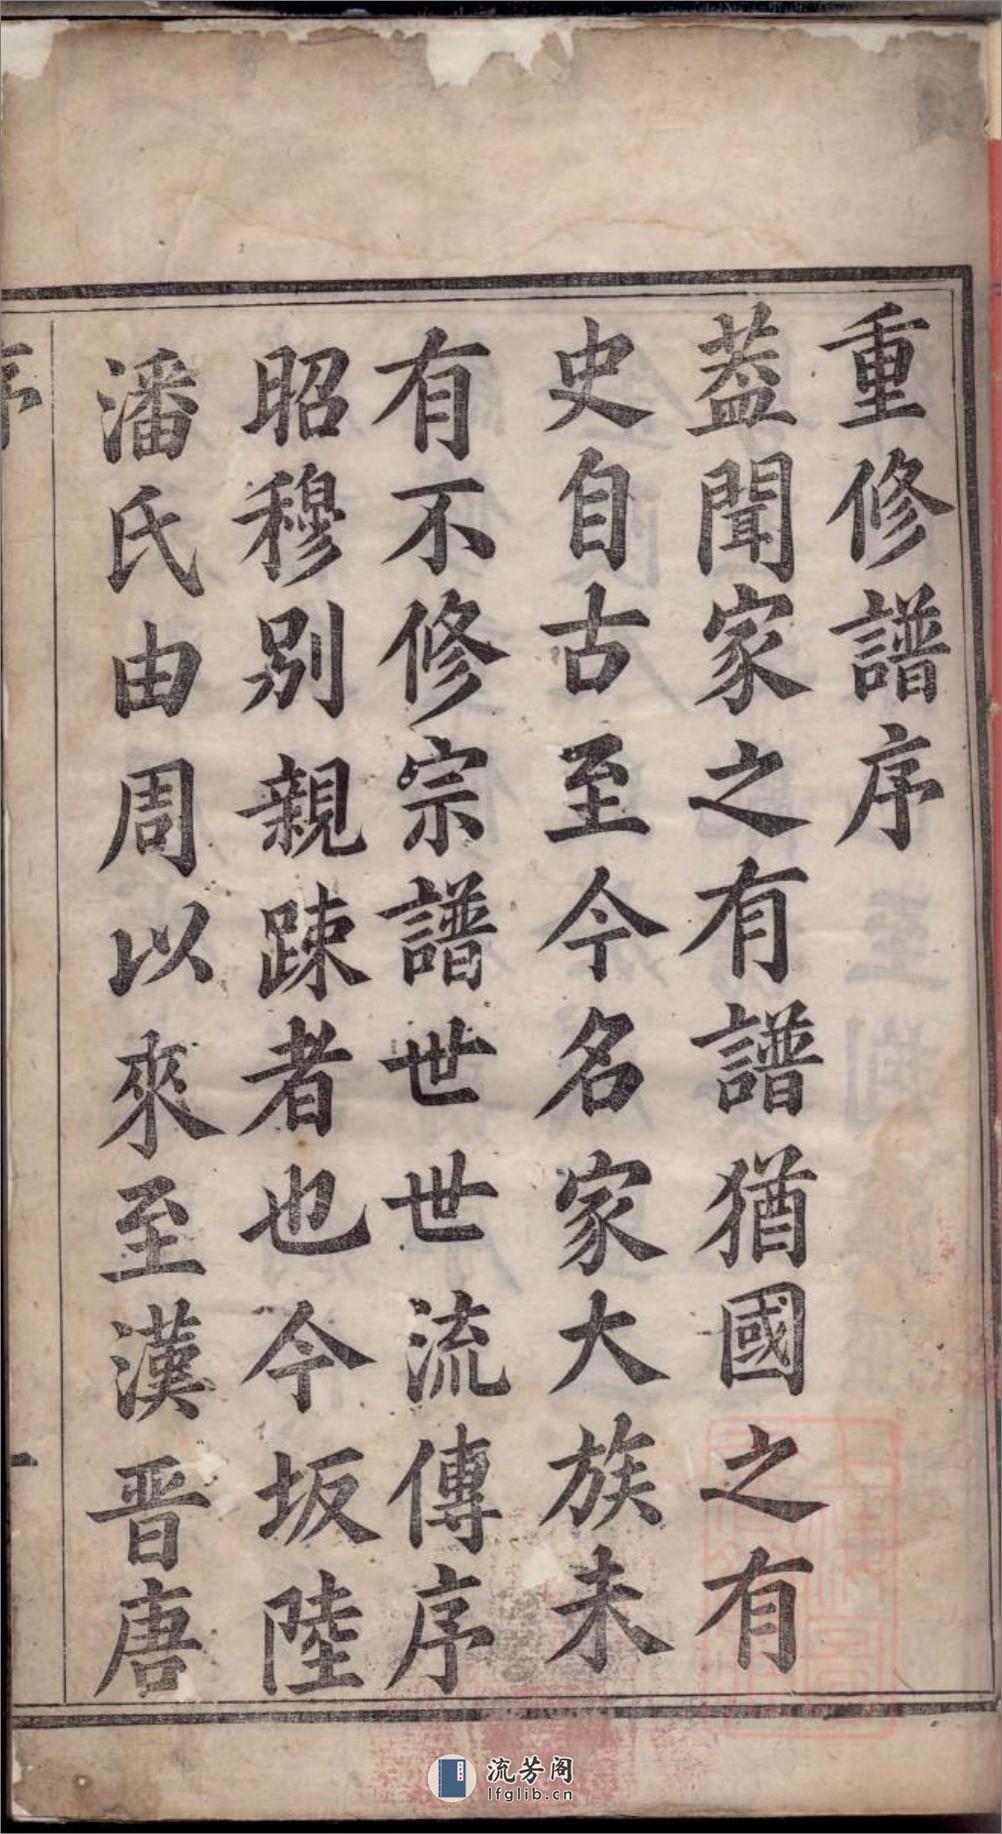 重修譜序
葢聞家之有譜猶國之有
史自古至今名家大族未
有不修宗譜世世流傳序
昭穆別親踈者也今坂陸
潘氏由周以來至漢晋唐
序
一
流芳阁
lfglib.cn